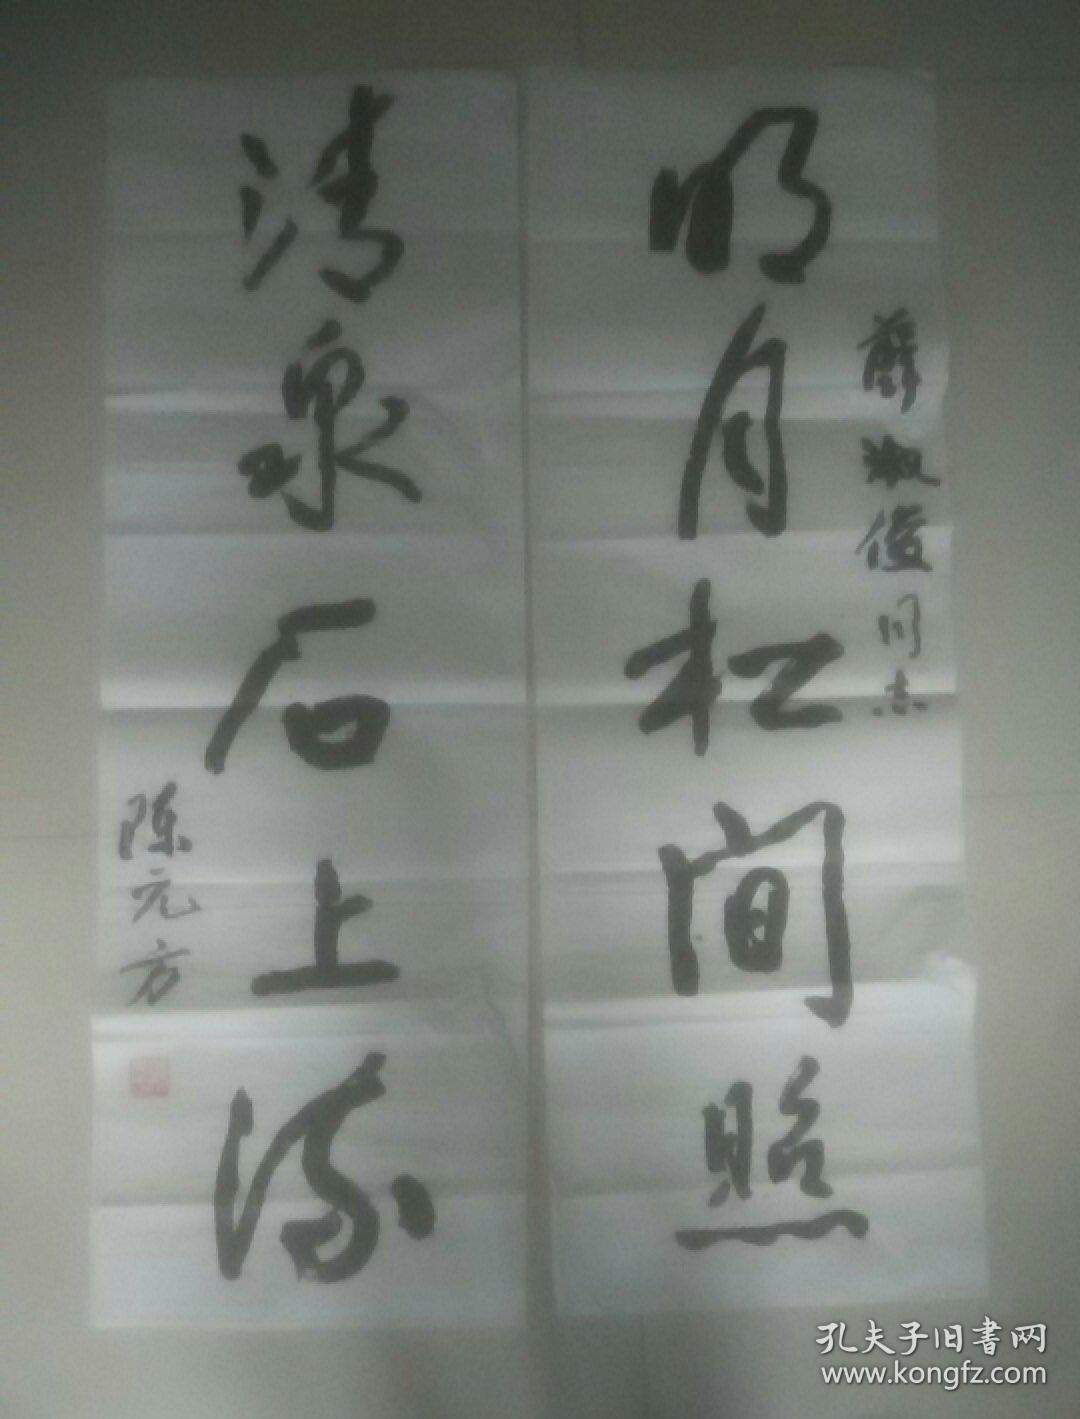 明月松间照
薛淑俊同志
清泉石上流
陈元方
孔夫子旧書网
www.kongfz.com